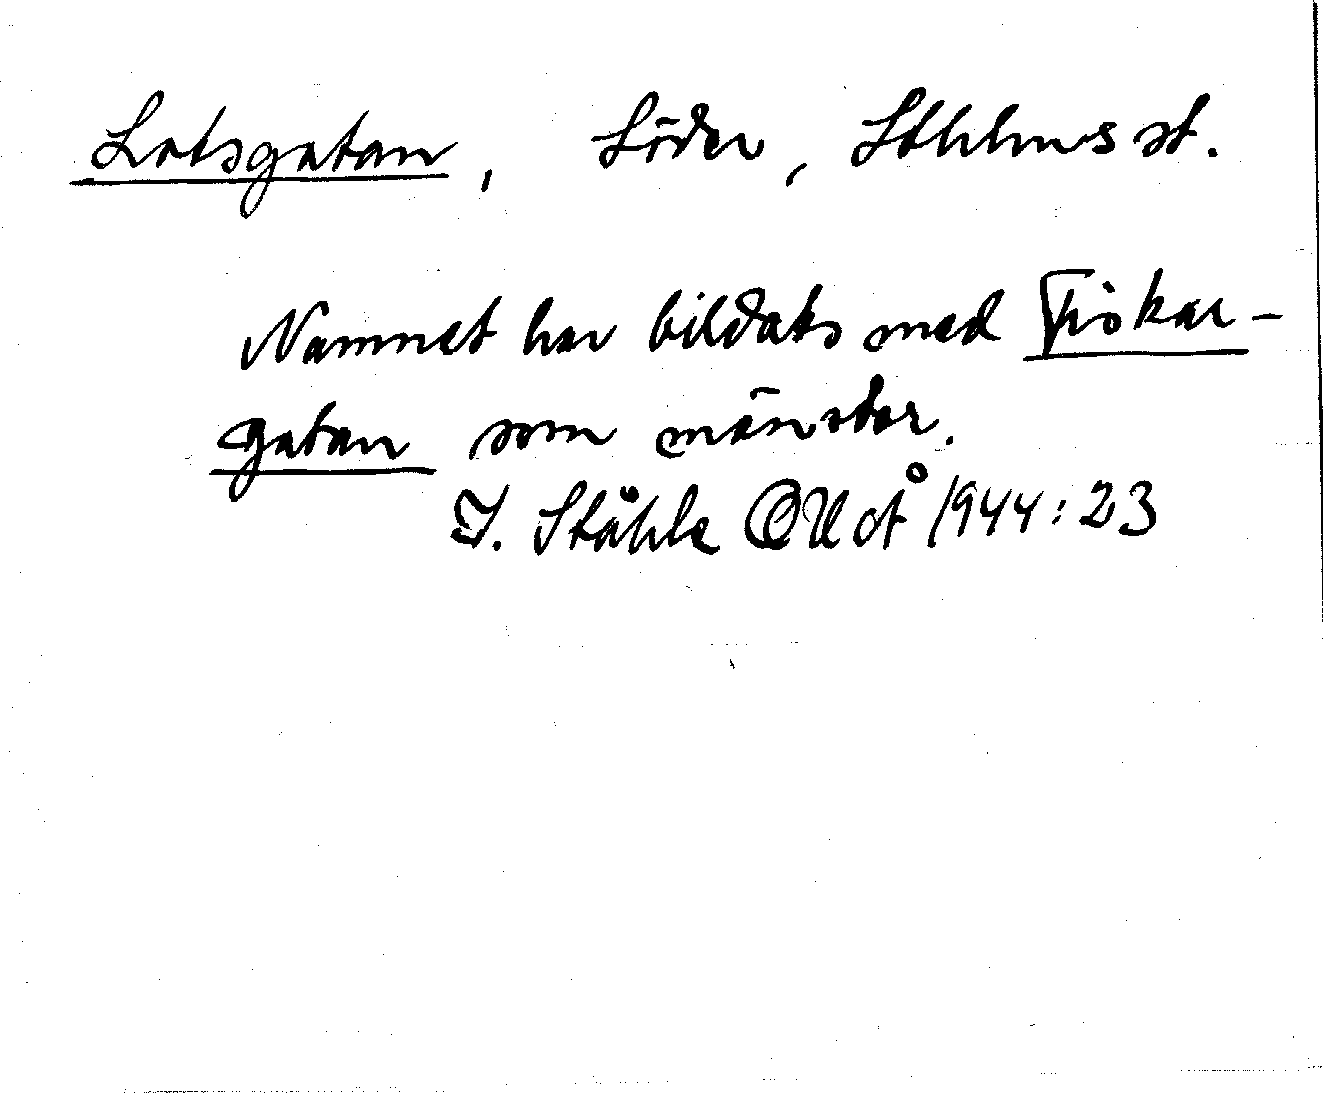 Lotsgatan, Söder, Sthlms st.
Namnet har bildats med Fiskar-
gatan som mönster.
C. I. Ståhle OUÅ 1944:23